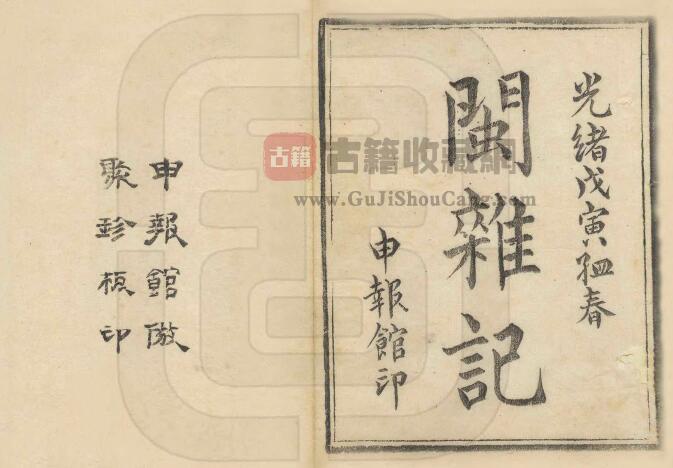 光緒戊寅孟春
閩雜記
申報館印
申報館倣
聚珍板印
古籍
古籍收藏網
www.GuJiShouCang.com